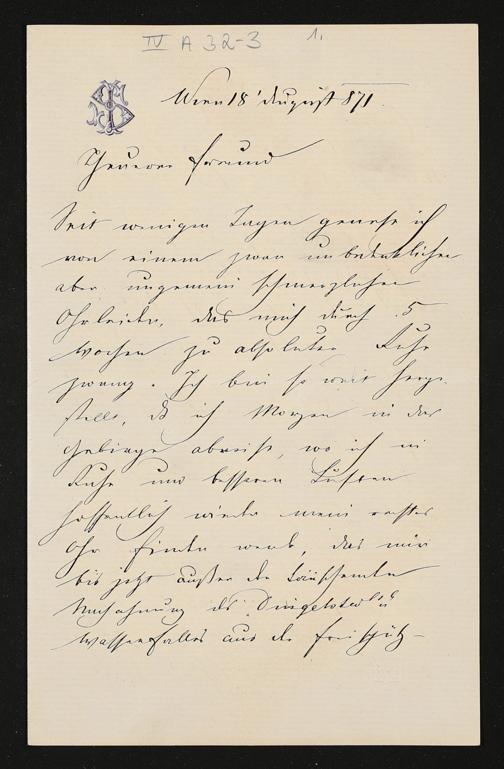 IV A 32-3 1.
Wien 18' August 871.
Theurer Freund
Seit wenigen Tagen genese ich
von einem zwar unbedenklichen
aber ungemein schmerzlichen
Ohrleiden, das mich durch 5
Wochen zu absoluter Ruhe
zwang. Ich bin so weit herge-
stellt, daß ich Morgen in das
Gebirge abreise, wo ich in
Ruhe und besseren Lüften
hoffentlich wieder mein rechtes
Ohr finden werde, das mir
bis jetzt außer der täuschenden
Nachahmung des Dingelstedt'schen
Wasserfalles aus der Freischütz-